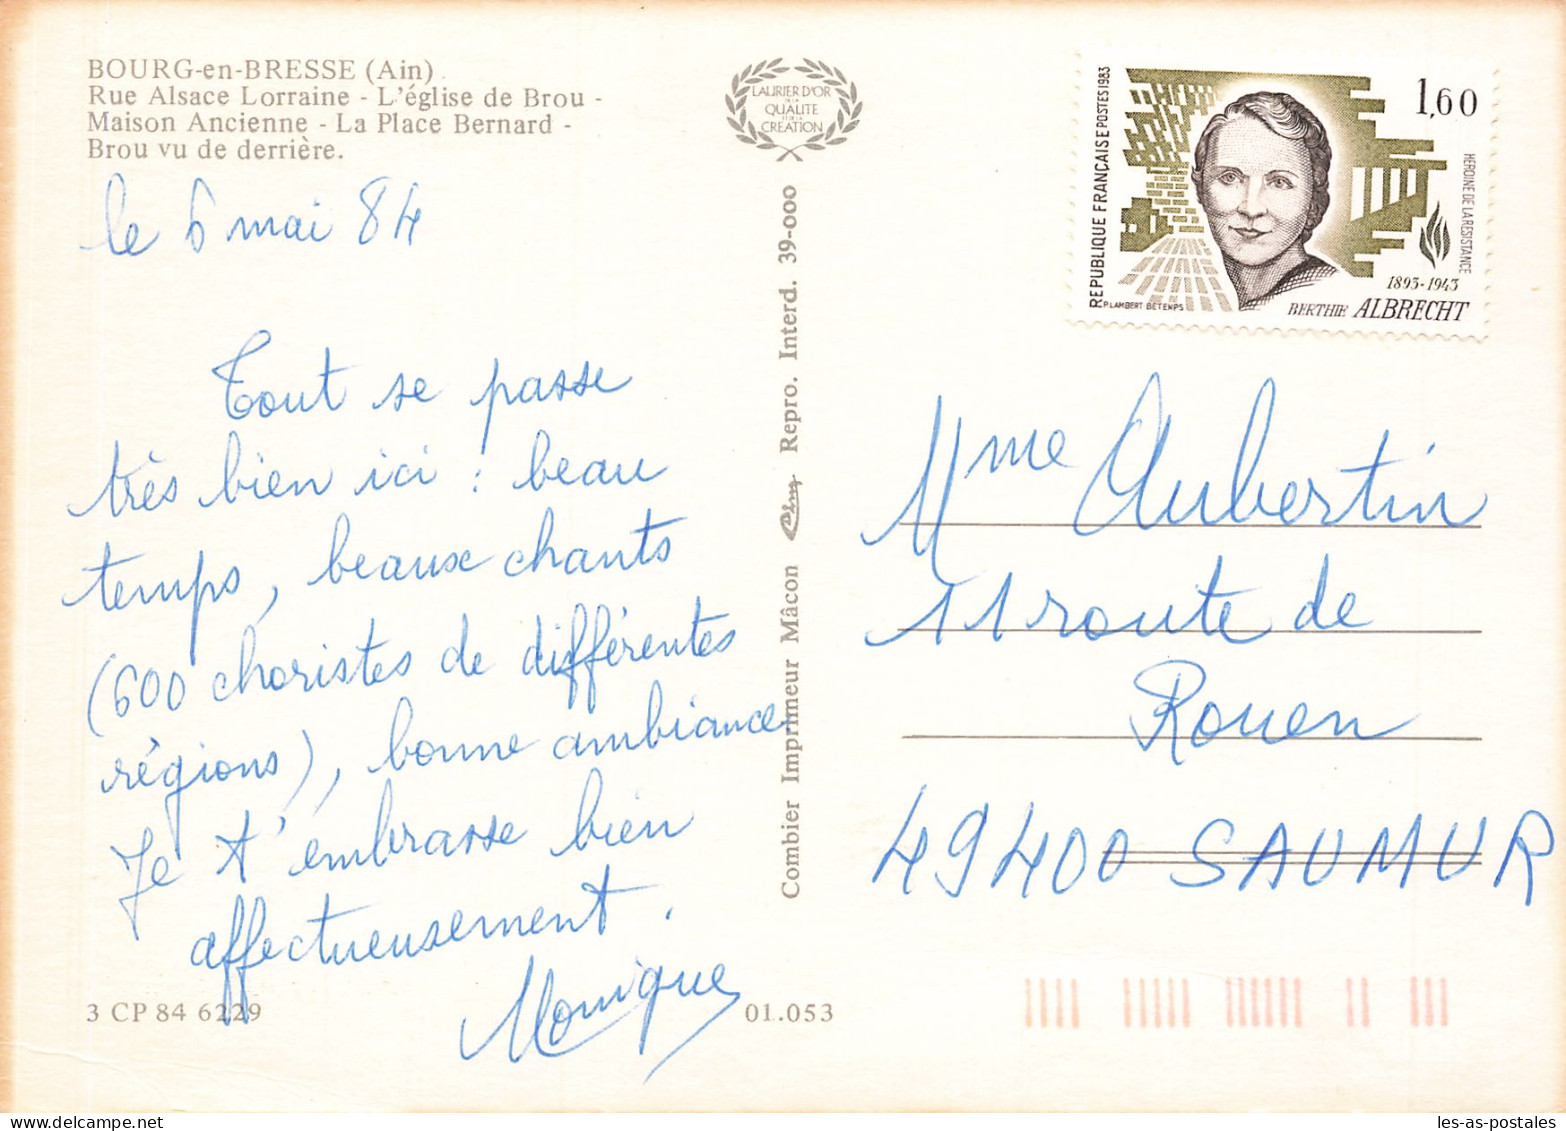 BOURG-en-BRESSE (Ain)
Rue Alsace Lorraine - L'église de Brou -
Maison Ancienne - La Place Bernard -
Brou vu de derrière.
le 6 mai 84
Tout se passe
très bien ici : beau
temps, beaux chants
(600 choristes de différentes
régions), bonne ambiance
Je t'embrasse bien
affectueusement.
Monique
3 CP 84 6229
01.053
LAURIER D'OR
DE LA
QUALITE
ET DE LA
CREATION
Combier Imprimeur Mâcon
Repro. Interd. 39-000
REPUBLIQUE FRANÇAISE POSTES 1983
1,60
HEROINE DE LA RESISTANCE
1893-1943
P. LAMBERT-BETEMPS
BERTHIE ALBRECHT
Mme Aubertin
11 route de
Rouen
49400 SAUMUR
les-as-postales